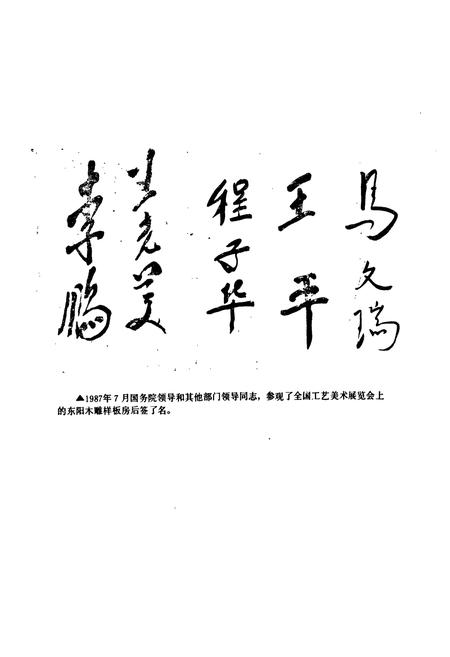 李鹏
王光美
程子华
王平
马文瑞
▲1987年7月国务院领导和其他部门领导同志，参观了全国工艺美术展览会上
的东阳木雕样板房后签了名。